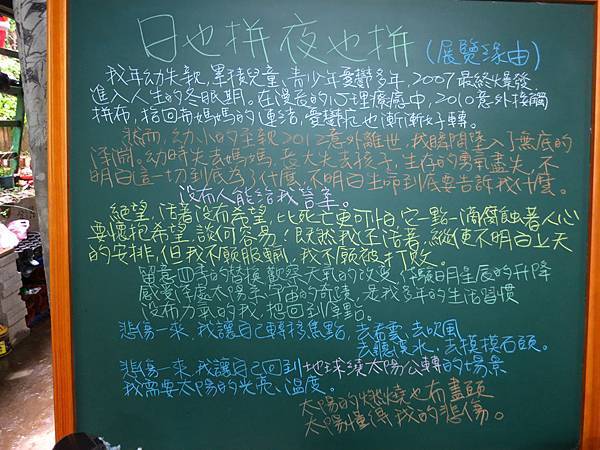 日也拼 夜也拼 (展覽緣由)
我年幼失親,累積兒童、青少年憂鬱多年,2007最終爆發
進入人生的冬眠期。在漫長的心理療癒中,2010意外接觸
拼布,拾回和媽媽的連結,憂鬱症也漸漸好轉。
然而,幼小的至親2012意外離世,我瞬間墜入了無底的
深淵。幼時失去媽媽,長大失去孩子,生存的勇氣盡失,不
明白這一切到底為了什麼,不明白生命到底要告訴我什麼。
沒有人能給我答案。
絕望,活著沒有希望,比死亡更可怕,它一點一滴腐蝕著人心
要懷抱希望,談何容易!既然我還活著,縱使不明白上天
的安排,但我不願服輸,我不願被打敗。
留意四季的替換,觀察天氣的改變,體驗日月星辰的升降
感受浮處太陽系、宇宙的奇蹟,是我多年的生活習慣
沒有力氣的我,把回到原點。
悲傷一來,我讓自己轉移焦點,去看雲、去吹風
去聽溪水、去摸摸石頭。
悲傷一來,我讓自己回到地球繞太陽公轉的場景
我需要太陽的光亮、溫度。
太陽的燃燒也有盡頭
太陽懂得我的悲傷。